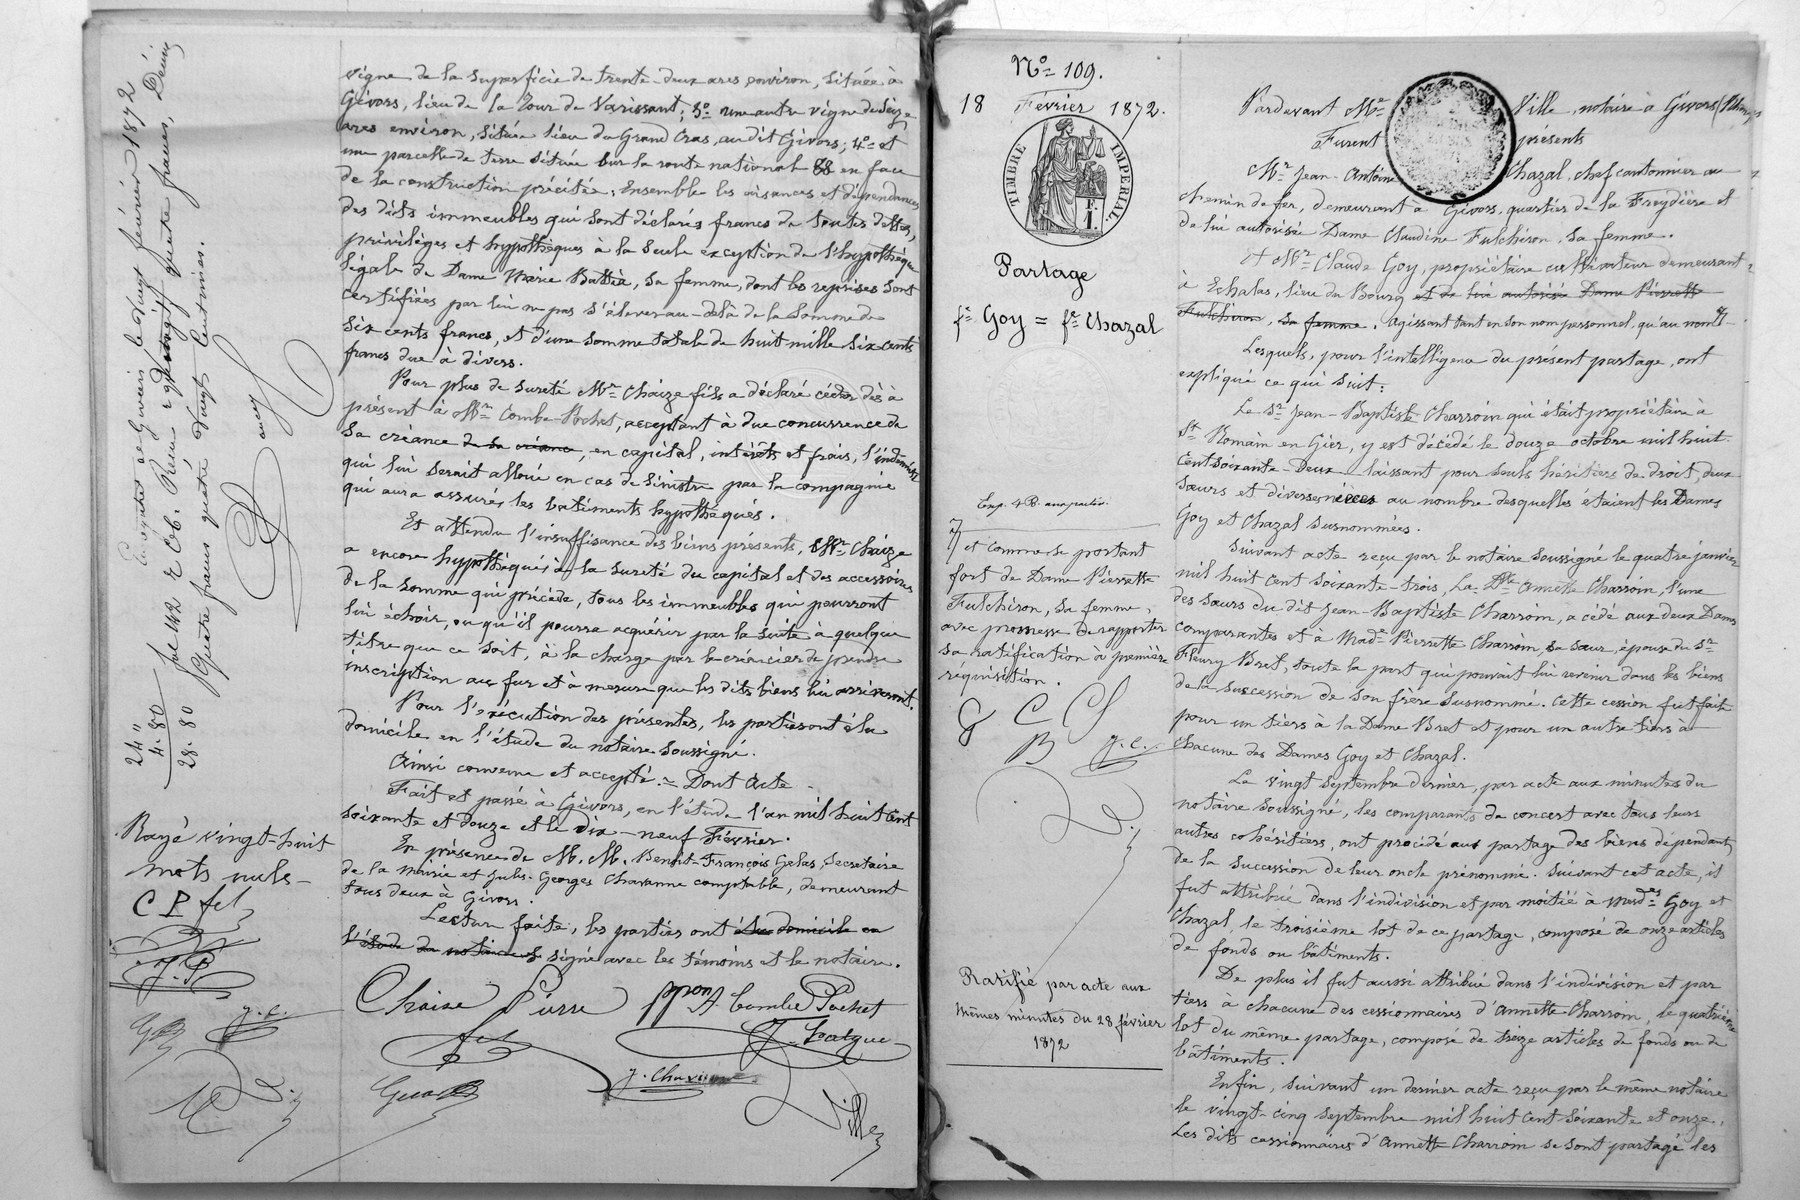 vigne de la superficie de trente-deux ares environ, située à
Givors, lieu de la Tour de Varissant; 3º une autre vigne de seize
ares environ, située lieu du Grand Cras, au dit Givors; 4º et
une parcelle de terre située sur la route national 88 en face
de la construction précitée; Ensemble les aisances et dépendances
des dits immeubles qui sont déclarés francs de toutes dettes,
privilèges et hypothèques à la seule exception de l'hypothèque
légale de Dame Marie Battia, sa femme, dont les reprises sont
certifiées par lui ne pas s'élever au-delà de la somme de
six cents francs, et d'une somme totale de huit mille six cents
francs due à divers.
Pour plus de sureté Mr Chaize fils a déclaré céder dès à
présent à Mr Combe-Pochet, acceptant à due concurrence de
sa créance de sa créance, en capital, intérêts et frais, l'indemnité
qui lui serait allouée en cas de sinistre par la compagnie
qui aura assurés les bâtiments hypothéqués.
Et attendu l'insuffisance des biens présents, Mr Chaize
a encore hypothéqués à la sureté du capital et des accessoires
de la somme qui précède, tous les immeubles qui pourront
lui échoir, ou qu'il pourra acquérir par la suite à quelque
titre que ce soit, à la charge par le créancier de prendre
inscription au fur et à mesure que les dits biens lui arriveront.
Pour l'exécution des présentes, les parties ont élu
domicile en l'étude du notaire soussigné.
Ainsi convenu et accepté. = Dont Acte
Fait et passé à Givors, en l'étude l'an mil huit cent
soixante et douze et le dix-neuf Février.
En présence de M. M. Benoit-François Gelas, Secrétaire
de la Mairie et Jules-Georges Chavanne comptable, demeurant
tous deux à Givors.
Lecture faite, les parties ont élu domicile en
l'étude du notaire et signé avec les témoins et le notaire.
Chaize Pierre
fils
A. Combe Pochet
J. Chavanne
Ville
Enregistré à Givors le vingt février 1872
fol 142 R C6. Reçu vingt quatre francs, Décime
Quatre francs quatre vingt centimes.
24 "
4. 80
28. 80
Rayé vingt-huit
mots nuls
C P fils
J. C.
Nº 109.
18 Février 1872.
TIMBRE IMPERIAL.
Partage
fe Goy = fe Chazal
et comme se portant
fort de Dame Pierrette
Fulchiron, sa femme,
avec promesse de rapporter
sa ratification à première
réquisition.
G C Ch
B J. C.
Ratifié par acte aux
mêmes minutes du 28 février
1872
Pardevant Me Ville, notaire à Givors (Rhône)
Furent présents
Mr Jean-Antoine Chazal, chef cantonnier au
chemin de fer, demeurant à Givors, quartier de la Freydière et
de lui autorisée Dame Claudine Fulchiron, sa femme.
Et Mr Claude Goy, propriétaire cultivateur demeurant
à Echalas, lieu du Bourg et de lui autorisée Dame Pierrette
Fulchiron, sa femme. Agissant tant en son nom personnel, qu'au nom
Lesquels, pour l'intelligence du présent partage, ont
expliqué ce qui suit:
Le Sr Jean-Baptiste Charroin qui était propriétaire à
St Romain en Gier, y est décédé le douze octobre mil huit
cent soixante-deux laissant pour seuls héritiers de droit, deux
sœurs et diverses nièces au nombre desquelles étaient les Dames
Goy et Chazal susnommées.
Suivant acte reçu par le notaire soussigné le quatre janvier
mil huit cent soixante-trois, La Dlle Annette Charroin, l'une
des sœurs du dit Jean-Baptiste Charroin, a cédé aux deux Dames
comparantes et à Made Pierrette Charroin, sa sœur, épouse du Sr
Fleury Bret, toute la part qui pouvait lui revenir dans les biens
de la succession de son frère susnommé. Cette cession fut faite
pour un tiers à la Dame Bret et pour un autre tiers à
chacune des Dames Goy et Chazal.
Le vingt septembre dernier, par acte aux minutes du
notaire soussigné, les comparants de concert avec tous leurs
autres cohéritiers, ont procédé au partage des biens dépendants
de la succession de leur oncle prénommé. Suivant cet acte, il
fut attribué dans l'indivision et par moitié à Mesdes Goy et
Chazal, le troisième lot de ce partage, composé de onze articles
de fonds ou bâtiments.
De plus il fut aussi attribué dans l'indivision et par
tiers à chacune des cessionnaires d'Annette Charroin, le quatrième
lot du même partage, composé de treize articles de fonds ou de
bâtiments.
Enfin, suivant un dernier acte reçu par le même notaire
le vingt-cinq septembre mil huit cent soixante et onze,
Les dits cessionnaires d'Annette Charroin se sont partagé les